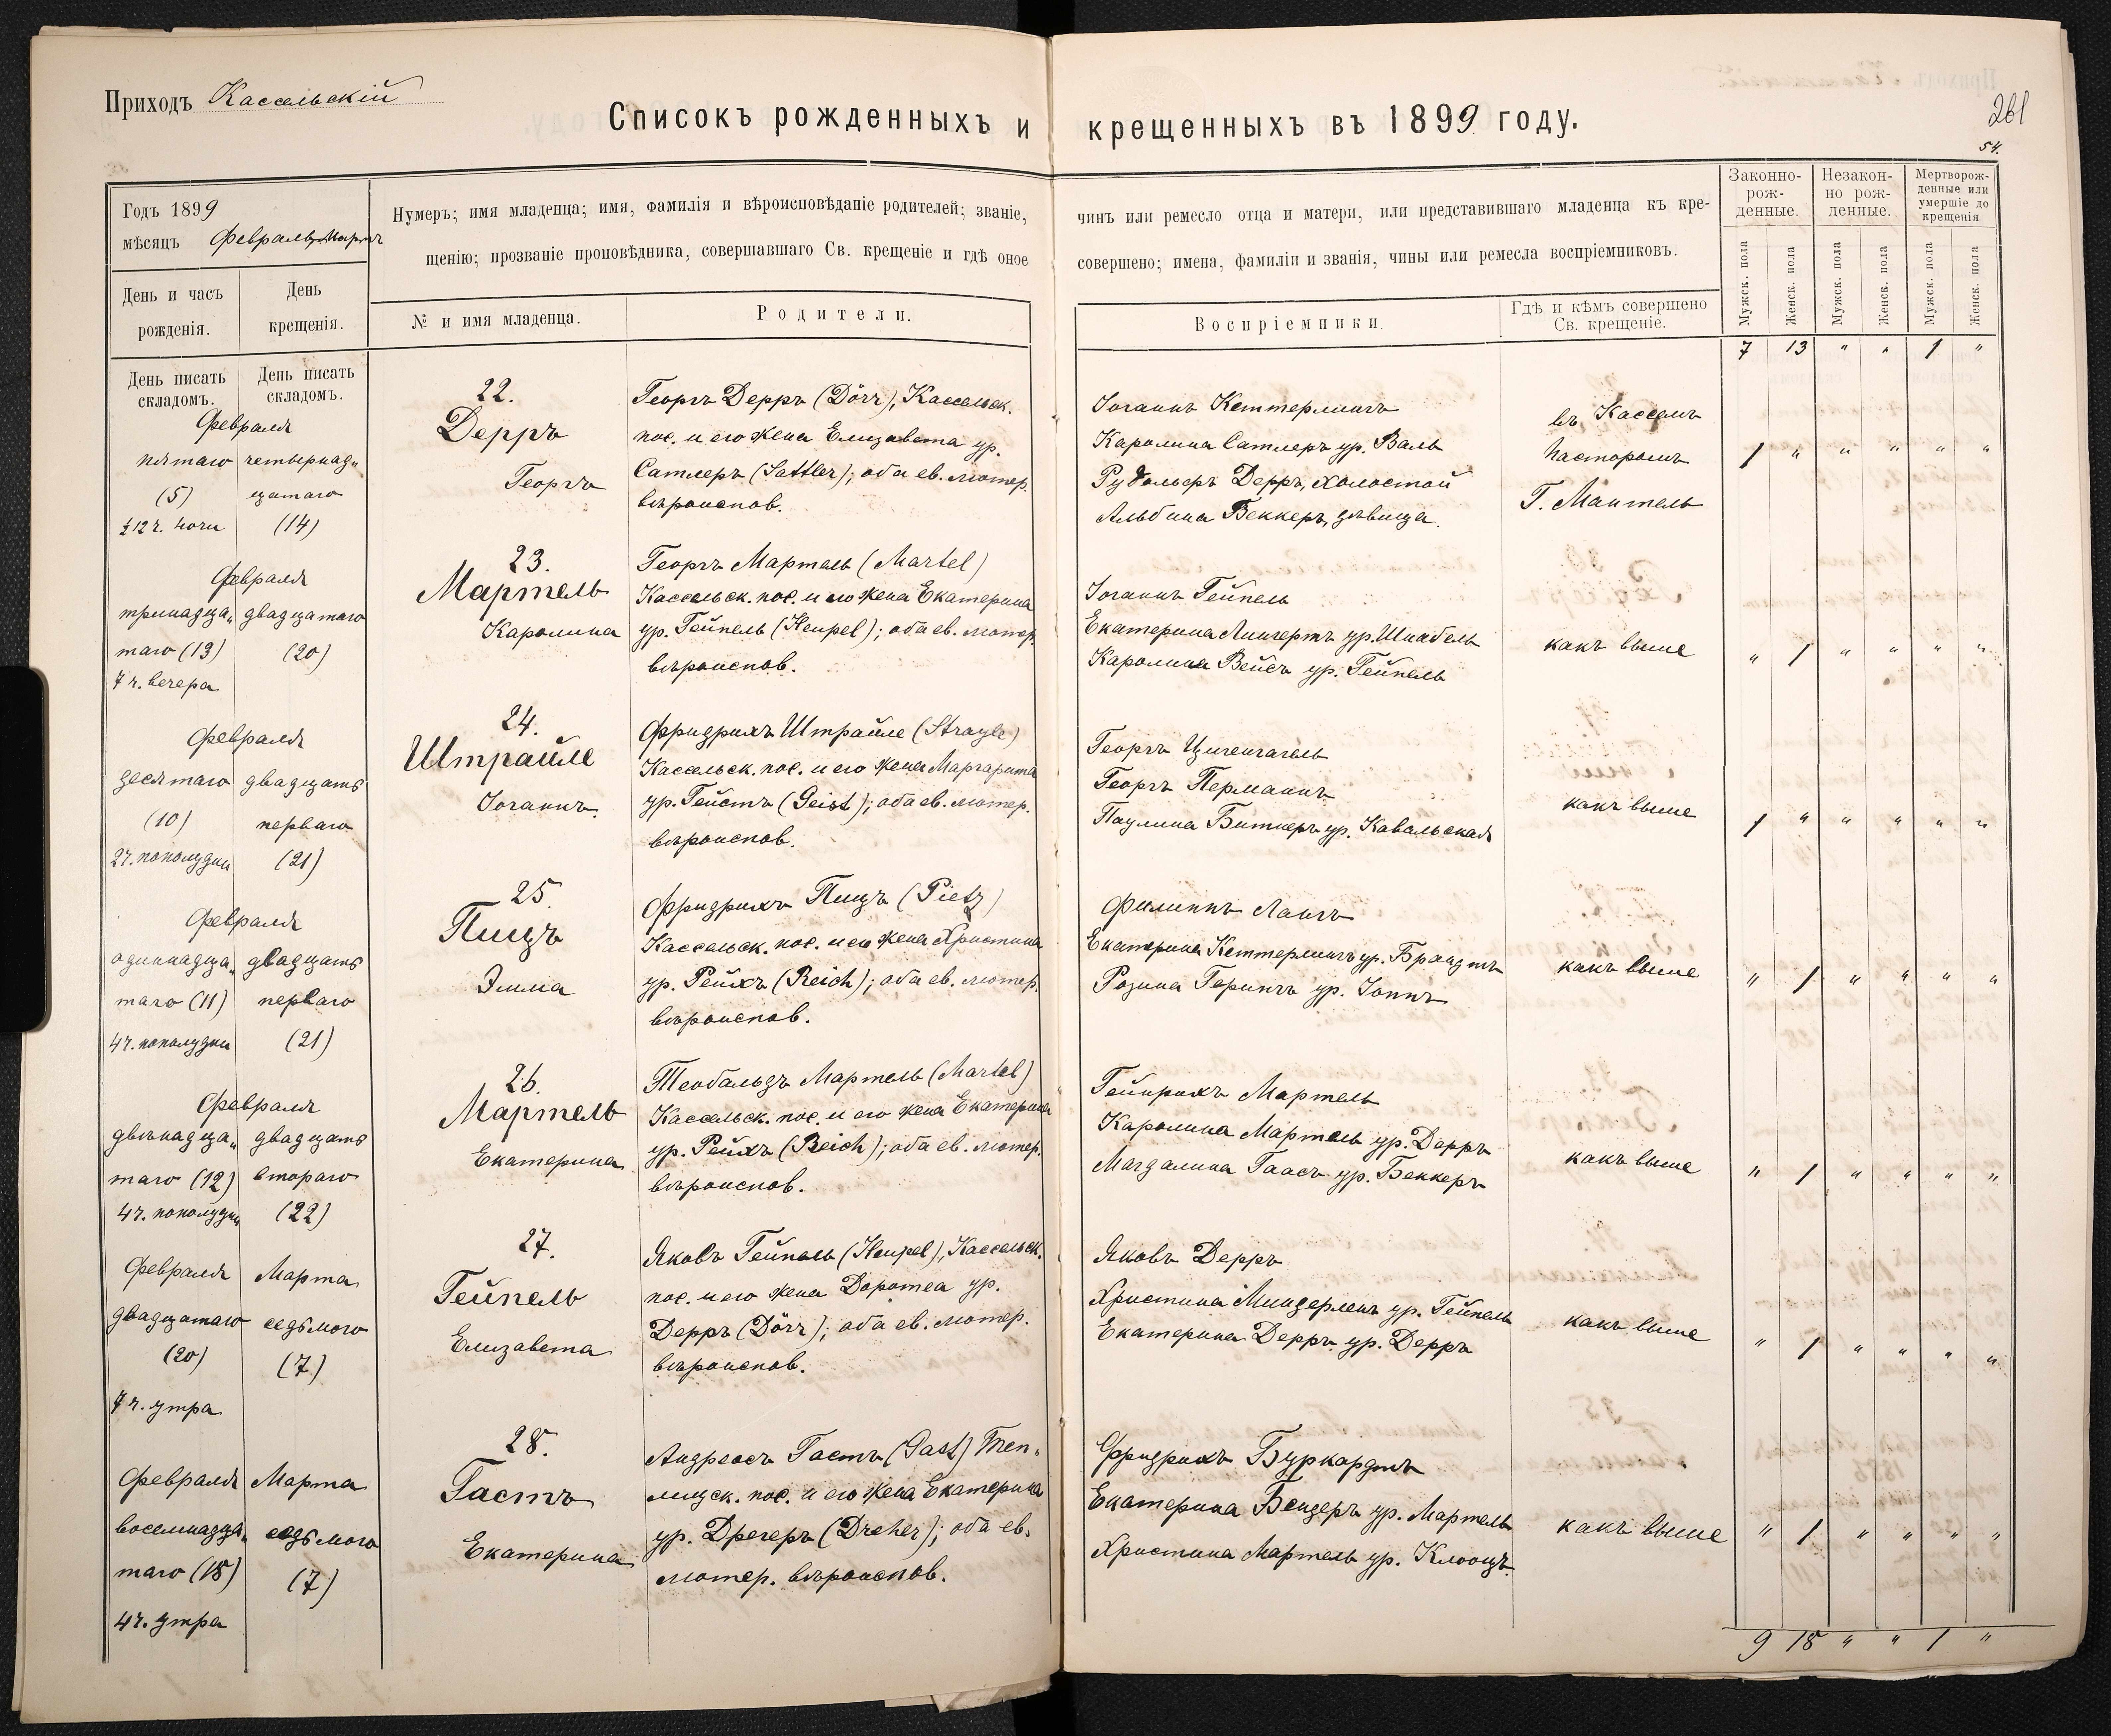 Приходъ Кассельскій
Списокъ рожденныхъ и крещенныхъ въ 1899 году.
261
54.
Годъ 1899
мѣсяцъ Февраль, Мартъ
Нумеръ; имя младенца; имя, фамилія и вѣроисповѣданіе родителей; званіе, чинъ или ремесло отца и матери, или представившаго младенца къ кре-
щенію; прозваніе проповѣдника, совершавшаго Св. крещеніе и гдѣ оное совершено; имена, фамиліи и званія, чины или ремесла воспріемниковъ.
Законно-
рож-
денные.
Незакон-
но рож-
денные.
Мертворож-
денные или
умершіе до
крещенія
Мужск. пола
Женск. пола
Мужск. пола
Женск. пола
Мужск. пола
Женск. пола
День и часъ
рожденія.
День
крещенія.
№ и имя младенца.
Родители.
Воспріемники.
Гдѣ и кѣмъ совершено
Св. крещеніе.
7 13 " " 1 "
День писать
складомъ.
День писать
складомъ.
Февраля
пятаго
(5)
½12 ч. ночи
четырнад„
цатаго
(14)
22.
Дерръ
Георгъ
Георгъ Дерръ (Dörr), Кассельск.
пос. и его жена Елизавета ур.
Сатлеръ (Sattler); оба ев. лютер.
вѣроиспов.
Іоганнъ Кеттерлингъ
Каролина Сатлеръ ур. Валь
Рудольфъ Дерръ, холостой
Альбина Веккеръ, дѣвица.
въ Касселѣ
пасторомъ
Г. Мантель
1 " " " " "
Февраля
тринадца„
таго (13)
7 ч. вечера
двадцатаго
(20)
23.
Мартель
Каролина
Георгъ Мартель (Martel)
Кассельск. пос. и его жена Екатерина
ур. Гейпель (Heupel); оба ев. лютер.
вѣроиспов.
Іоганнъ Гейпель
Екатерина Лингертъ ур. Шнабель
Каролина Вейсъ ур. Гейпель
какъ выше
" 1 " " " "
Февраля
десятаго
(10)
2 ч. пополудни
двадцать
перваго
(21)
24.
Штрайле
Іоганнъ.
Фридрихъ Штрайле (Strayle)
Кассельск. пос. и его жена Маргарита
ур. Гейстъ (Geist); оба ев. лютер.
вѣроиспов.
Георгъ Цигенгагель
Георгъ Германнъ
Паулина Битнеръ ур. Кавальская
какъ выше
1 " " " " "
Февраля
одиннадца„
таго (11)
4 ч. пополудни
двадцать
перваго
(21)
25.
Пицъ
Эмма
Фридрихъ Пицъ (Pietz)
Кассельск. пос. и его жена Христина
ур. Рейхъ (Reich); оба ев. лютер.
вѣроиспов.
Филиппъ Лангъ
Екатерина Кеттерлингъ ур. Брандтъ
Розина Герингъ ур. Іоннъ
какъ выше
" 1 " " " "
Февраля
двѣнадца„
таго (12)
4 ч. пополудни
двадцать
втораго
(22)
26.
Мартель
Екатерина
Теобальдъ Мартель (Martel)
Кассельск. пос. и его жена Екатерина
ур. Рейхъ (Reich); оба ев. лютер.
вѣроиспов.
Гейнрихъ Мартель
Каролина Мартель ур. Дерръ
Магдалина Гаасъ ур. Беккеръ
какъ выше
" 1 " " " "
Февраля
двадцатаго
(20)
7 ч. утра
Марта
седьмого
(7)
27.
Гейпель
Елизавета
Яковъ Гейпель (Heupel), Кассельск.
пос. и его жена Доротеа ур.
Дерръ (Dörr); оба ев. лютер.
вѣроиспов.
Яковъ Дерръ
Христина Миндерлень ур. Гейпель
Екатерина Дерръ ур. Дерръ
какъ выше
" 1 " " " "
Февраля
восемнадца„
таго (18)
4 ч. утра
Марта
седьмого
(7)
28.
Гастъ
Екатерина
Андреасъ Гастъ (Gast) Теп„
лицск. пос. и его жена Екатерина
ур. Дрегеръ (Dreher); оба ев.
лютер. вѣроиспов.
Фридрихъ Буркардтъ
Екатерина Бендеръ ур. Мартель
Христина Мартель ур. Клоотцъ
какъ выше
" 1 " " " "
9 18 " " 1 "